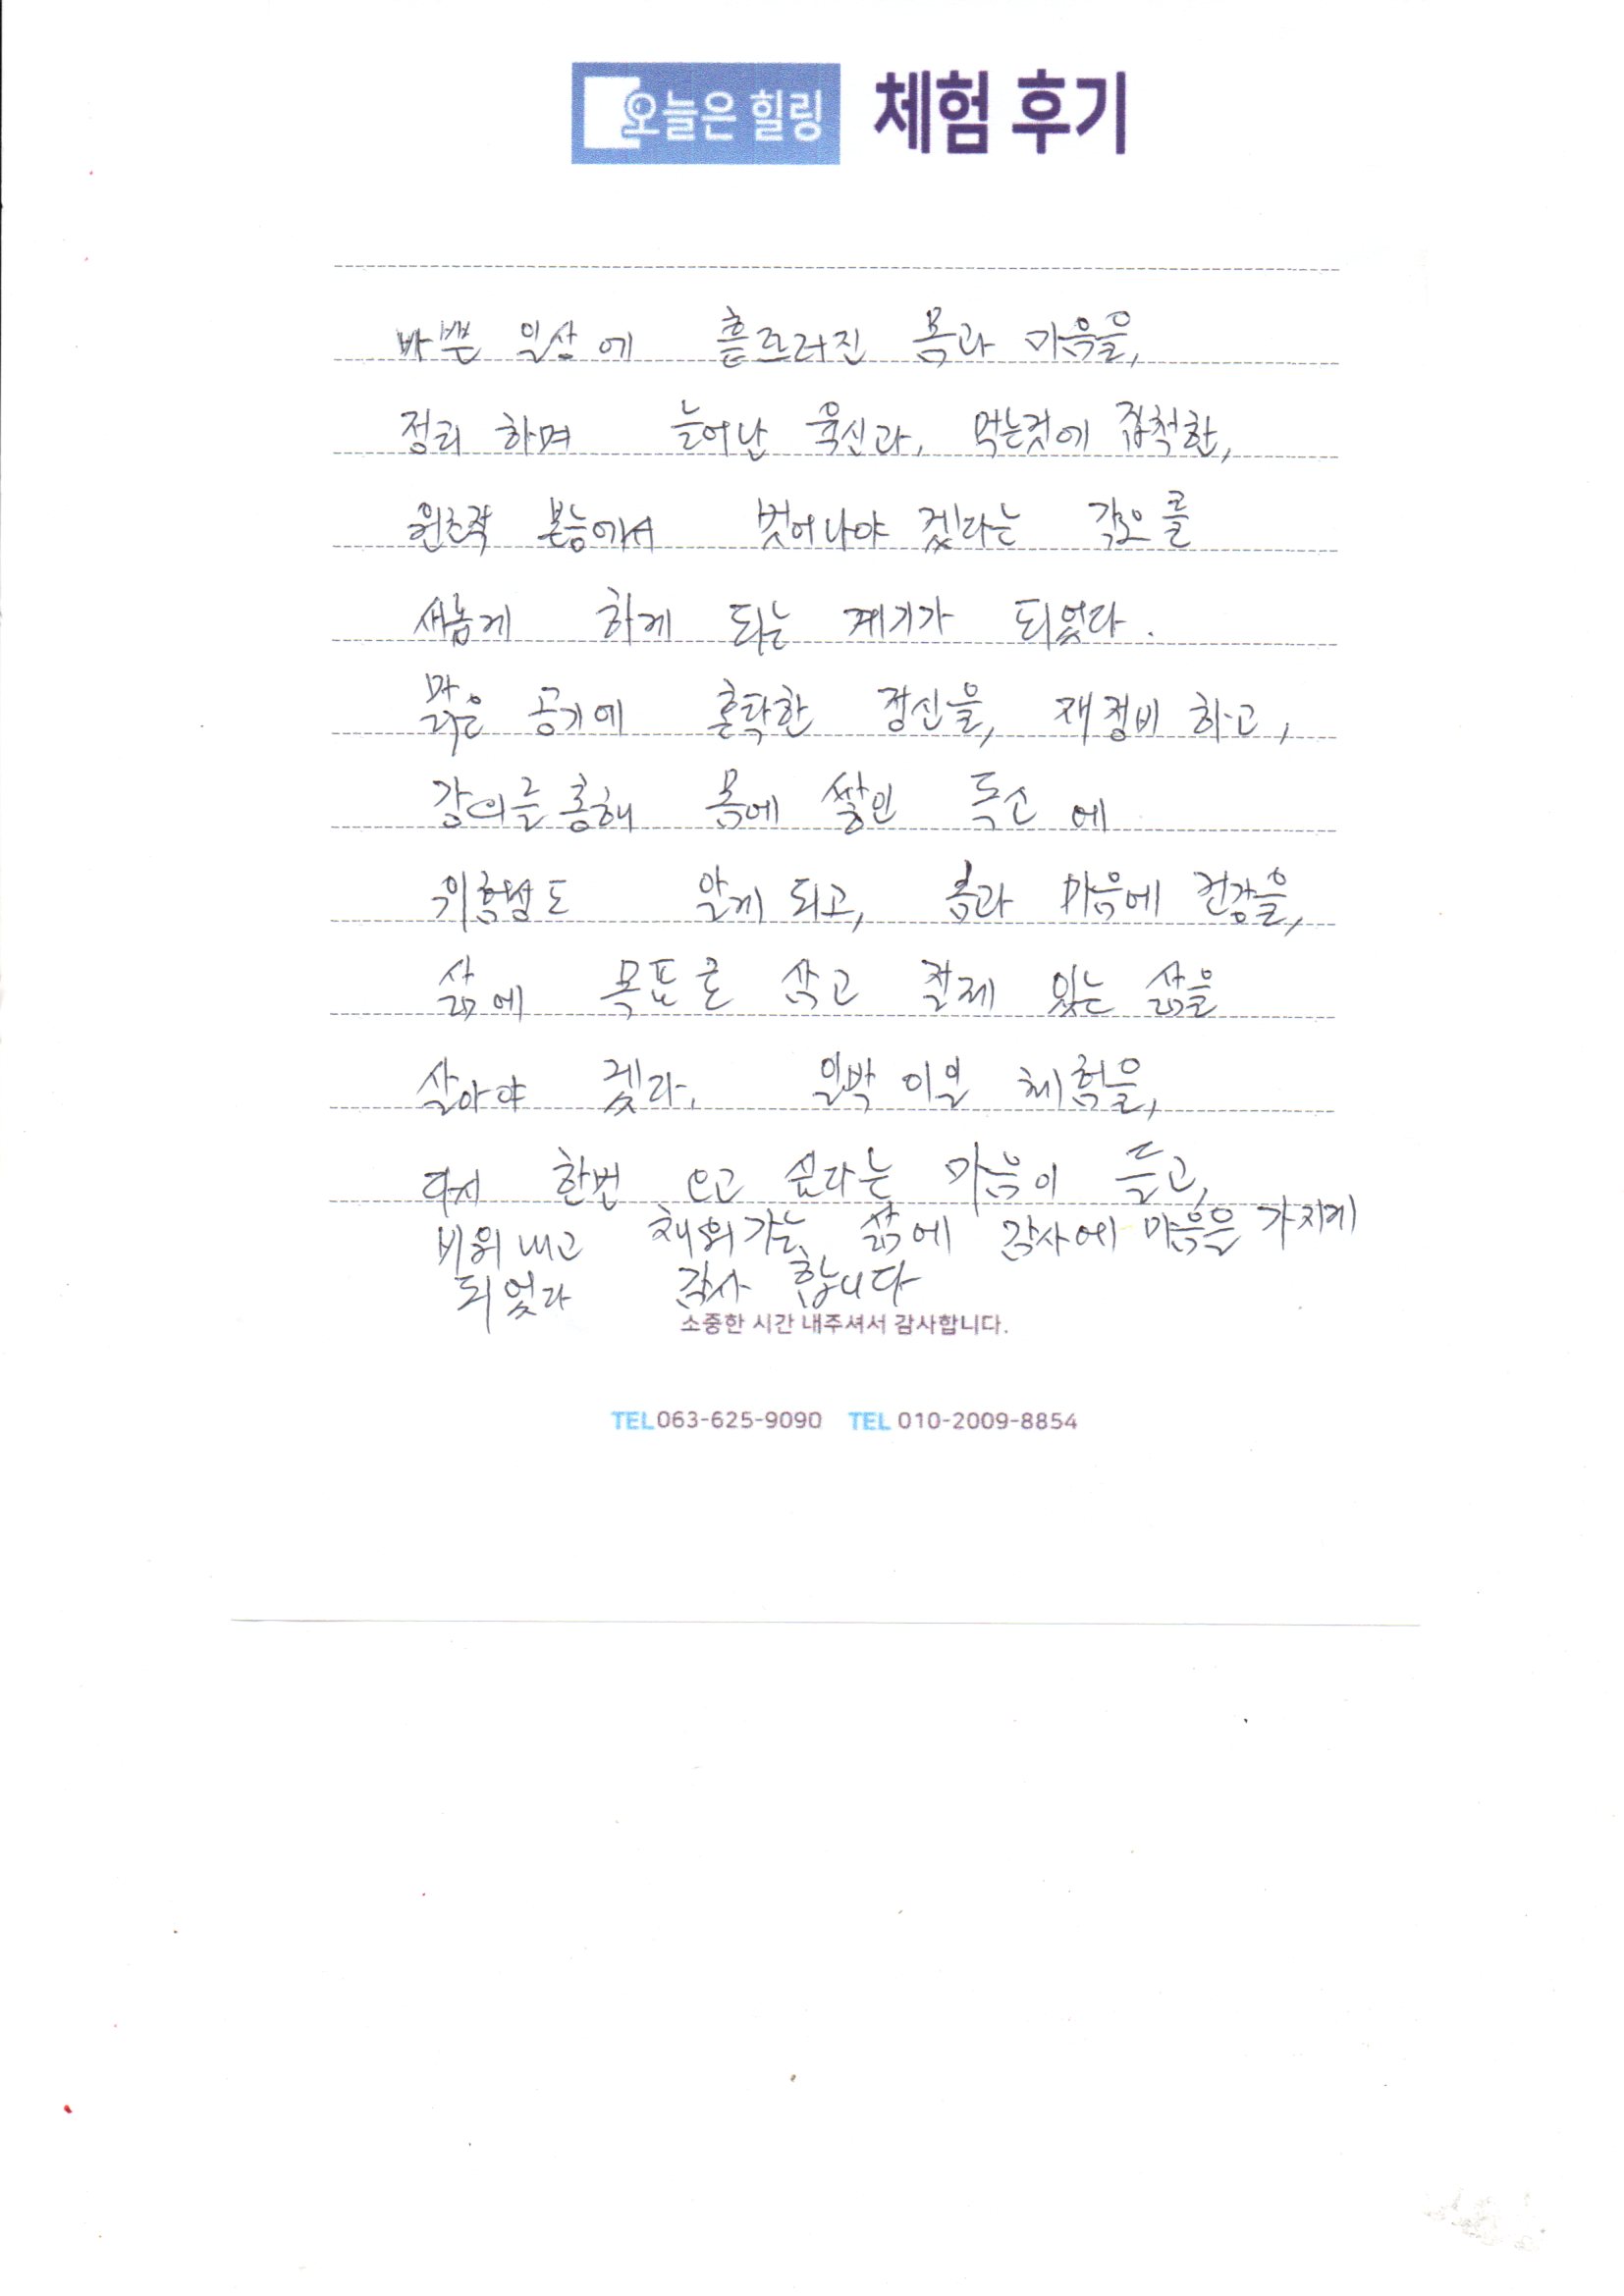 오늘은 힐링 체험 후기
바쁜 일상에 흩트러진 몸과 마음을,
정리 하며 늘어난 육신과, 먹는것에 집착한,
원초적 본능에서 벗어나야 겠다는 각오를
새롭게 하게 되는 계기가 되었다.
맑은 공기에 혼탁한 정신을, 재정비 하고,
강의를 통해 몸에 쌓인 독소에
위험성도 알게 되고, 몸과 마음에 건강을,
삶에 목표로 삼고 절제 있는 삶을
살아야 겠다. 일박 이일 체험을,
다시 한번 오고 싶다는 마음이 들고,
비워내고 채워가는 삶에 감사에 마음을 가지게
되었다 감사 합니다
소중한 시간 내주셔서 감사합니다.
TEL 063-625-9090 TEL 010-2009-8854